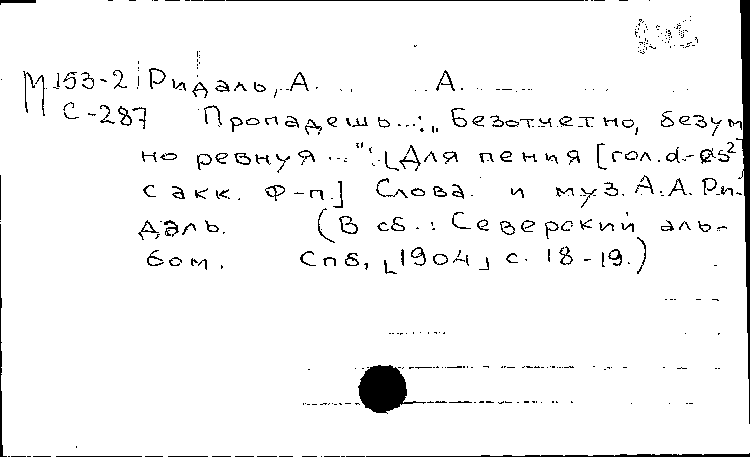 М 153-2 Ридаль, А. А.
С-287 Пропадешь...: „Безотчетно, безум
но ревнуя...": [Для пения [гол. d-es²
с акк. ф-п.] Слова и муз. А.А. Ри-
даль. (В сб.: Северский аль-
бом. Спб, [1904] с. 18-19.)